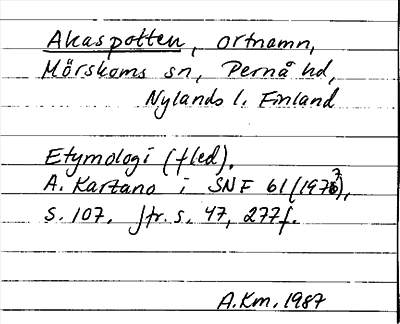 Akaspotten, ortnamn,
Mörskoms sn, Pernå hd,
Nylands l. Finland
Etymologi (fled).
A. Kartano i SNF 61 (1977),
s. 107. Jfr. s. 47, 277 f.
A.Km. 1987